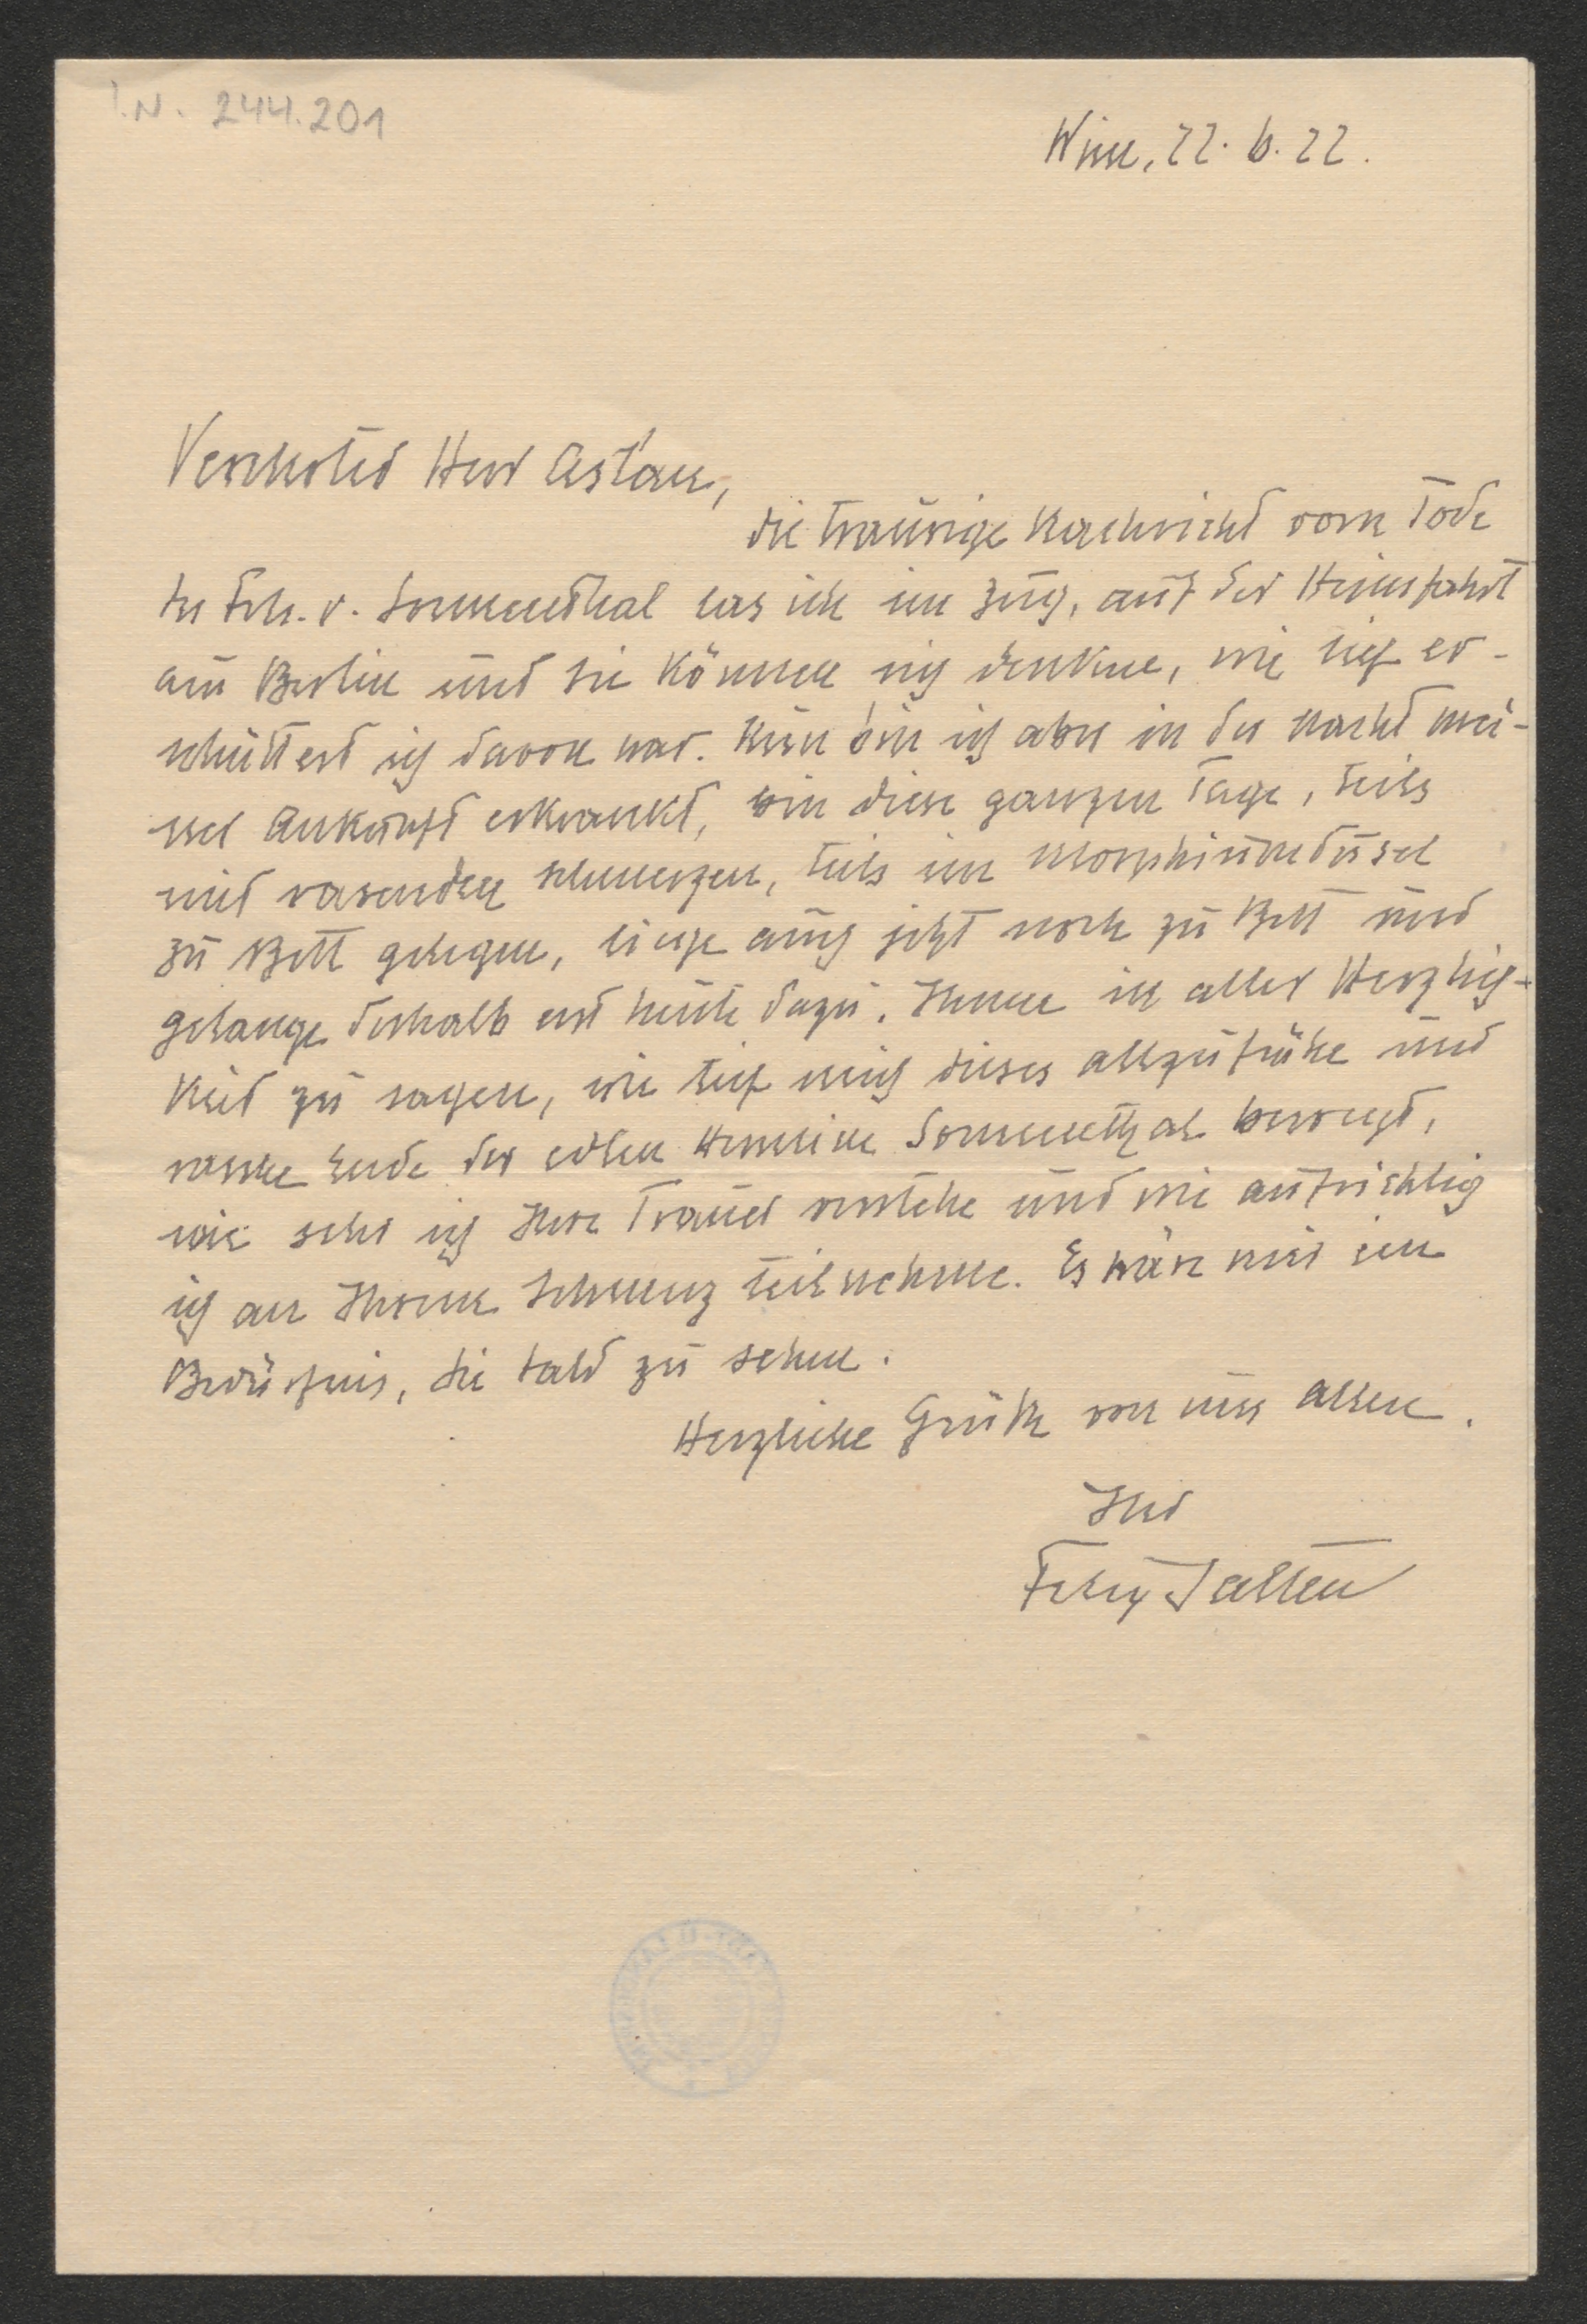 I.N. 244.201
Wien, 22. 6. 22.
Verehrter Herr Aslan,
die traurige Nachricht vom Tode
der Frl. v. Sonnenthal las ich im Zug, auf der Heimfahrt
aus Berlin und Sie können sich denken, wie tief er-
schüttert ich davon war. Nun bin ich aber in der Nacht mei-
ner Ankunft erkrankt, bin diese ganzen Tage, teils
mit rasenden Schmerzen, teils im Morphiumdusel
zu Bett gelegen, liege auch jetzt noch zu Bett und
gelange deshalb erst heute dazu, Ihnen in aller Herzlich-
keit zu sagen, wie tief mich dieses allzufrühe und
rasche Ende der edlen Hermine Sonnenthal bewegt,
wie sehr ich Ihre Trauer verstehe und wie aufrichtig
ich an Ihrem Schmerz teilnehme. Es wäre mir ein
Bedürfnis, Sie bald zu sehen.
Herzliche Grüße von uns allen.
Ihr
Felix Salten